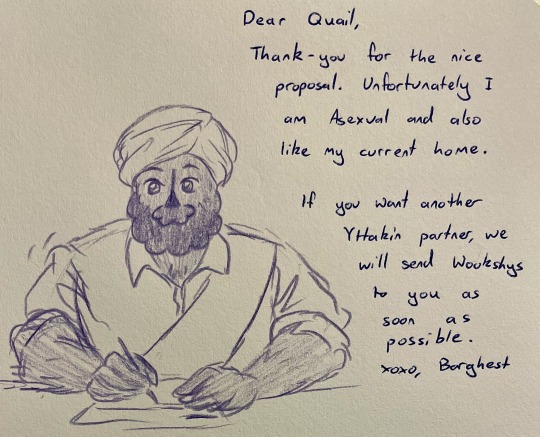 Dear Quail,
Thank-you for the nice
proposal. Unfortunately I
am Asexual and also
like my current home.
If you want another
YHakin partner, we
will send Wookshys
to you as
soon as
possible.
xoxo, Barghest